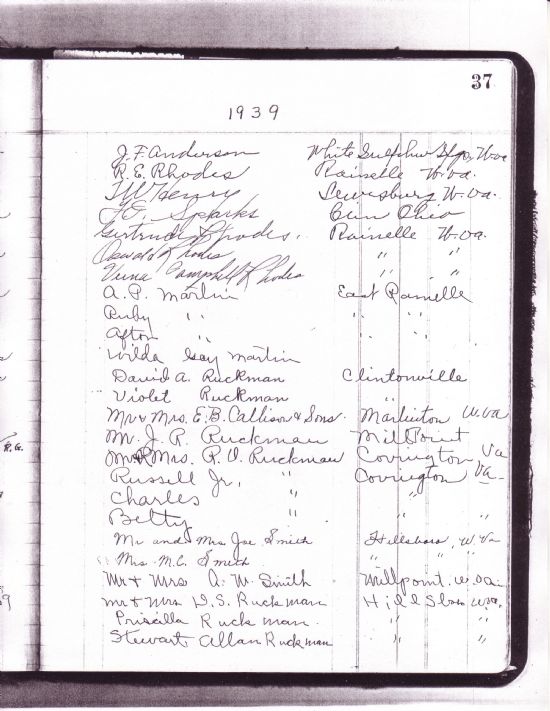 37
1939
J. F. Anderson White Sulphur Spgs. W.va
R. E. Rhodes Rainelle W.va.
Henry Lewisburg W.va.
Sparks Cinn Ohio
Gertrude Rhodes. Rainelle W.va.
Oswald Rhodes " "
Verna Campbell Rhodes " "
A. P. Martin East Rainelle
Ruby " " "
Afton " "
Wilda Gay Martin
David A. Ruckman Clintonville
Violet Ruckman "
Mr & Mrs. E. B. Callison & Sons Marlinton W.va
Mr. J. R. Ruckman Mill Point
Mr & Mrs. R. V. Ruckman Covington Va
Russell Jr. " Covington Va.
Charles " "
Betty " " "
Mr and Mrs Joe Smith Hillsboro, W. Va
Mrs. M.C. Smith " " "
R.G.
Mr & Mrs A. W. Smith Millpoint. W.va.
Mr & Mrs D.S. Ruckman Hillsboro W.va.
9
Priscilla Ruckman. " "
Stewart Allan Ruckman " "